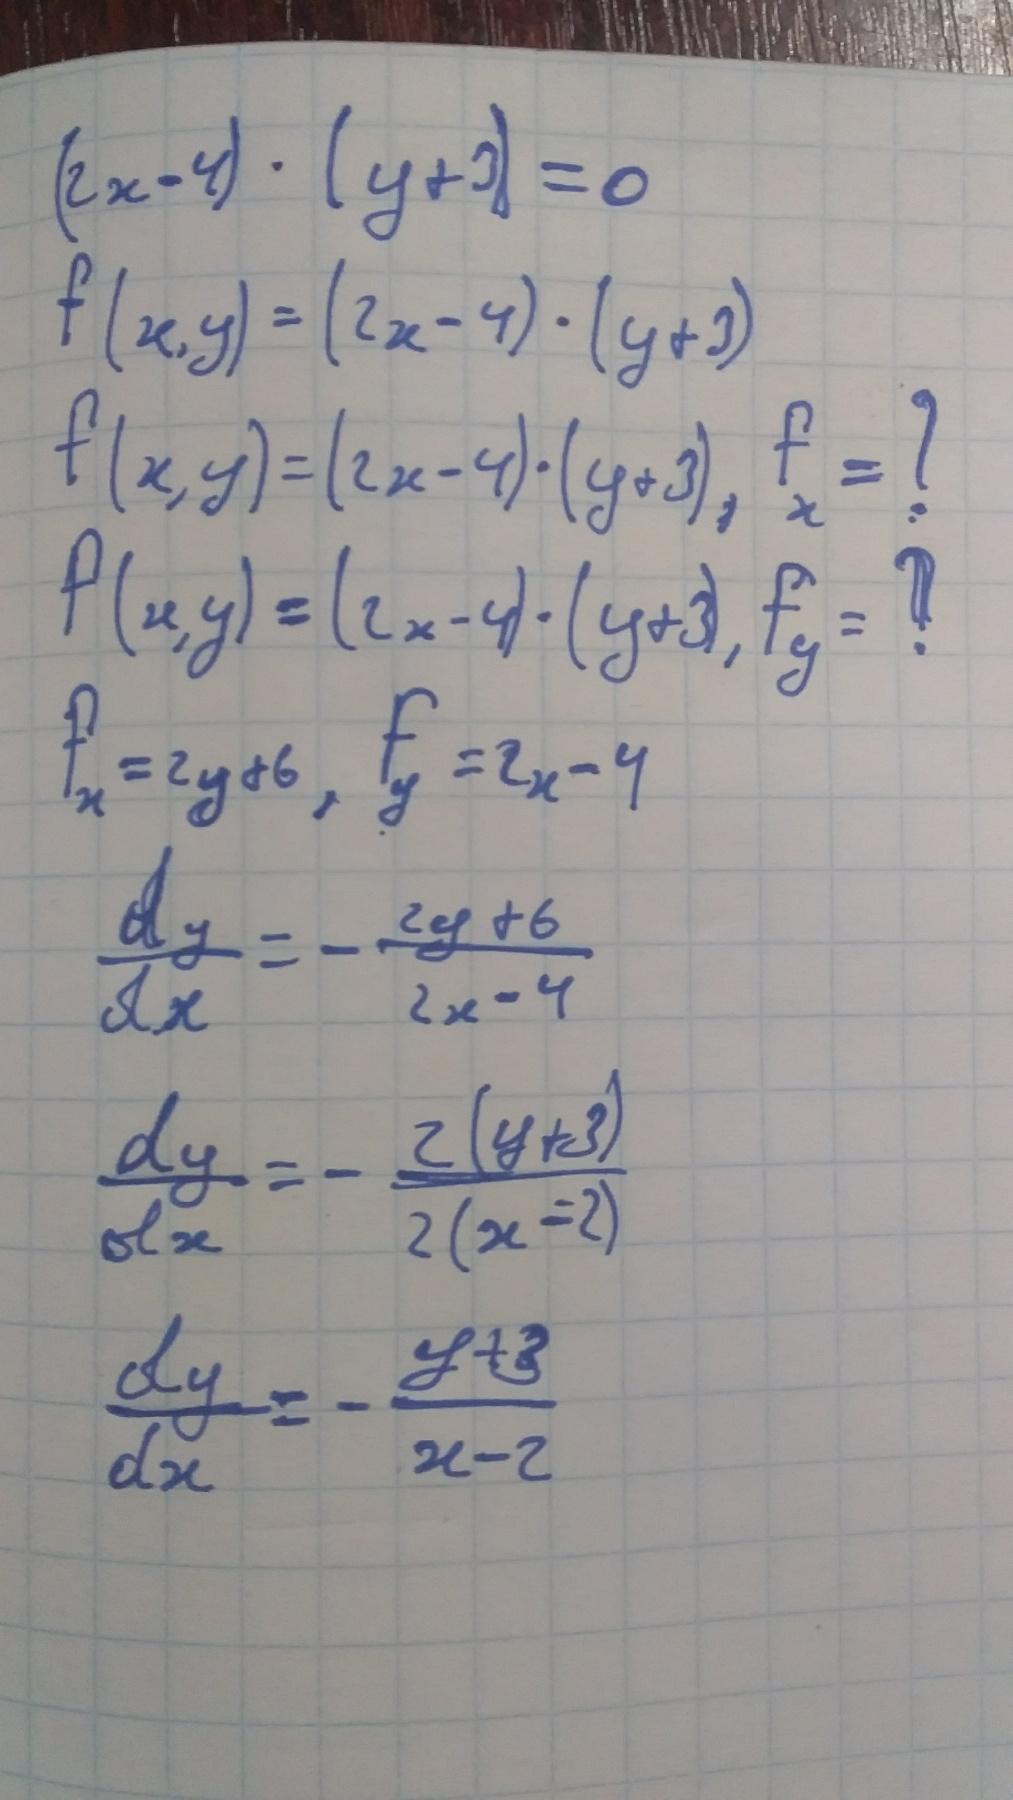 (2x-4)·(y+3)=0
f(x,y)=(2x-4)·(y+3)
f(x,y)=(2x-4)·(y+3), f_x=?
f(x,y)=(2x-4)·(y+3), f_y=?
f_x=2y+6, f_y=2x-4
dy/dx=-(2y+6)/(2x-4)
dy/dx=-2(y+3)/2(x-2)
dy/dx=-(y+3)/(x-2)